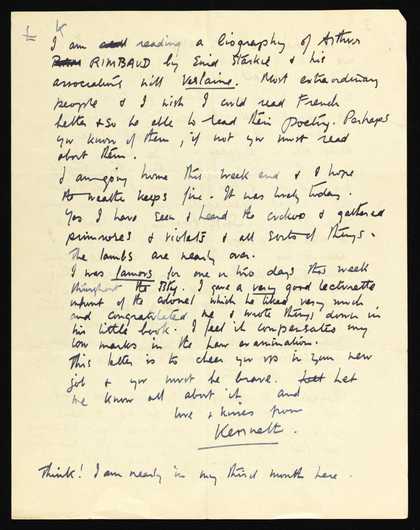 I am reading a biography of Arthur
RIMBAUD by Enid Starkie & his
associations with Verlaine. Most extraordinary
people & I wish I could read French
better & so be able to read their poetry. Perhaps
you know of them, if not you must read
about them.
I am going home this week end & I hope
the weather keeps fine. It was lovely today.
Yes I have seen & heard the cuckoo & gathered
primroses & violets & all sorts of things.
The lambs are nearly over.
I was famous for one or two days this week
throughout the Bty. I gave a very good lecturette
infront of the colonel which he liked very much
and congratulated me & wrote things down in
his little book. I feel it compensates my
low marks in the Law examination.
This letter is to cheer you up in your new
job & you must be brave. Let
me know all about it and
love & kisses from
Kenneth.
Think! I am nearly in my third month here.